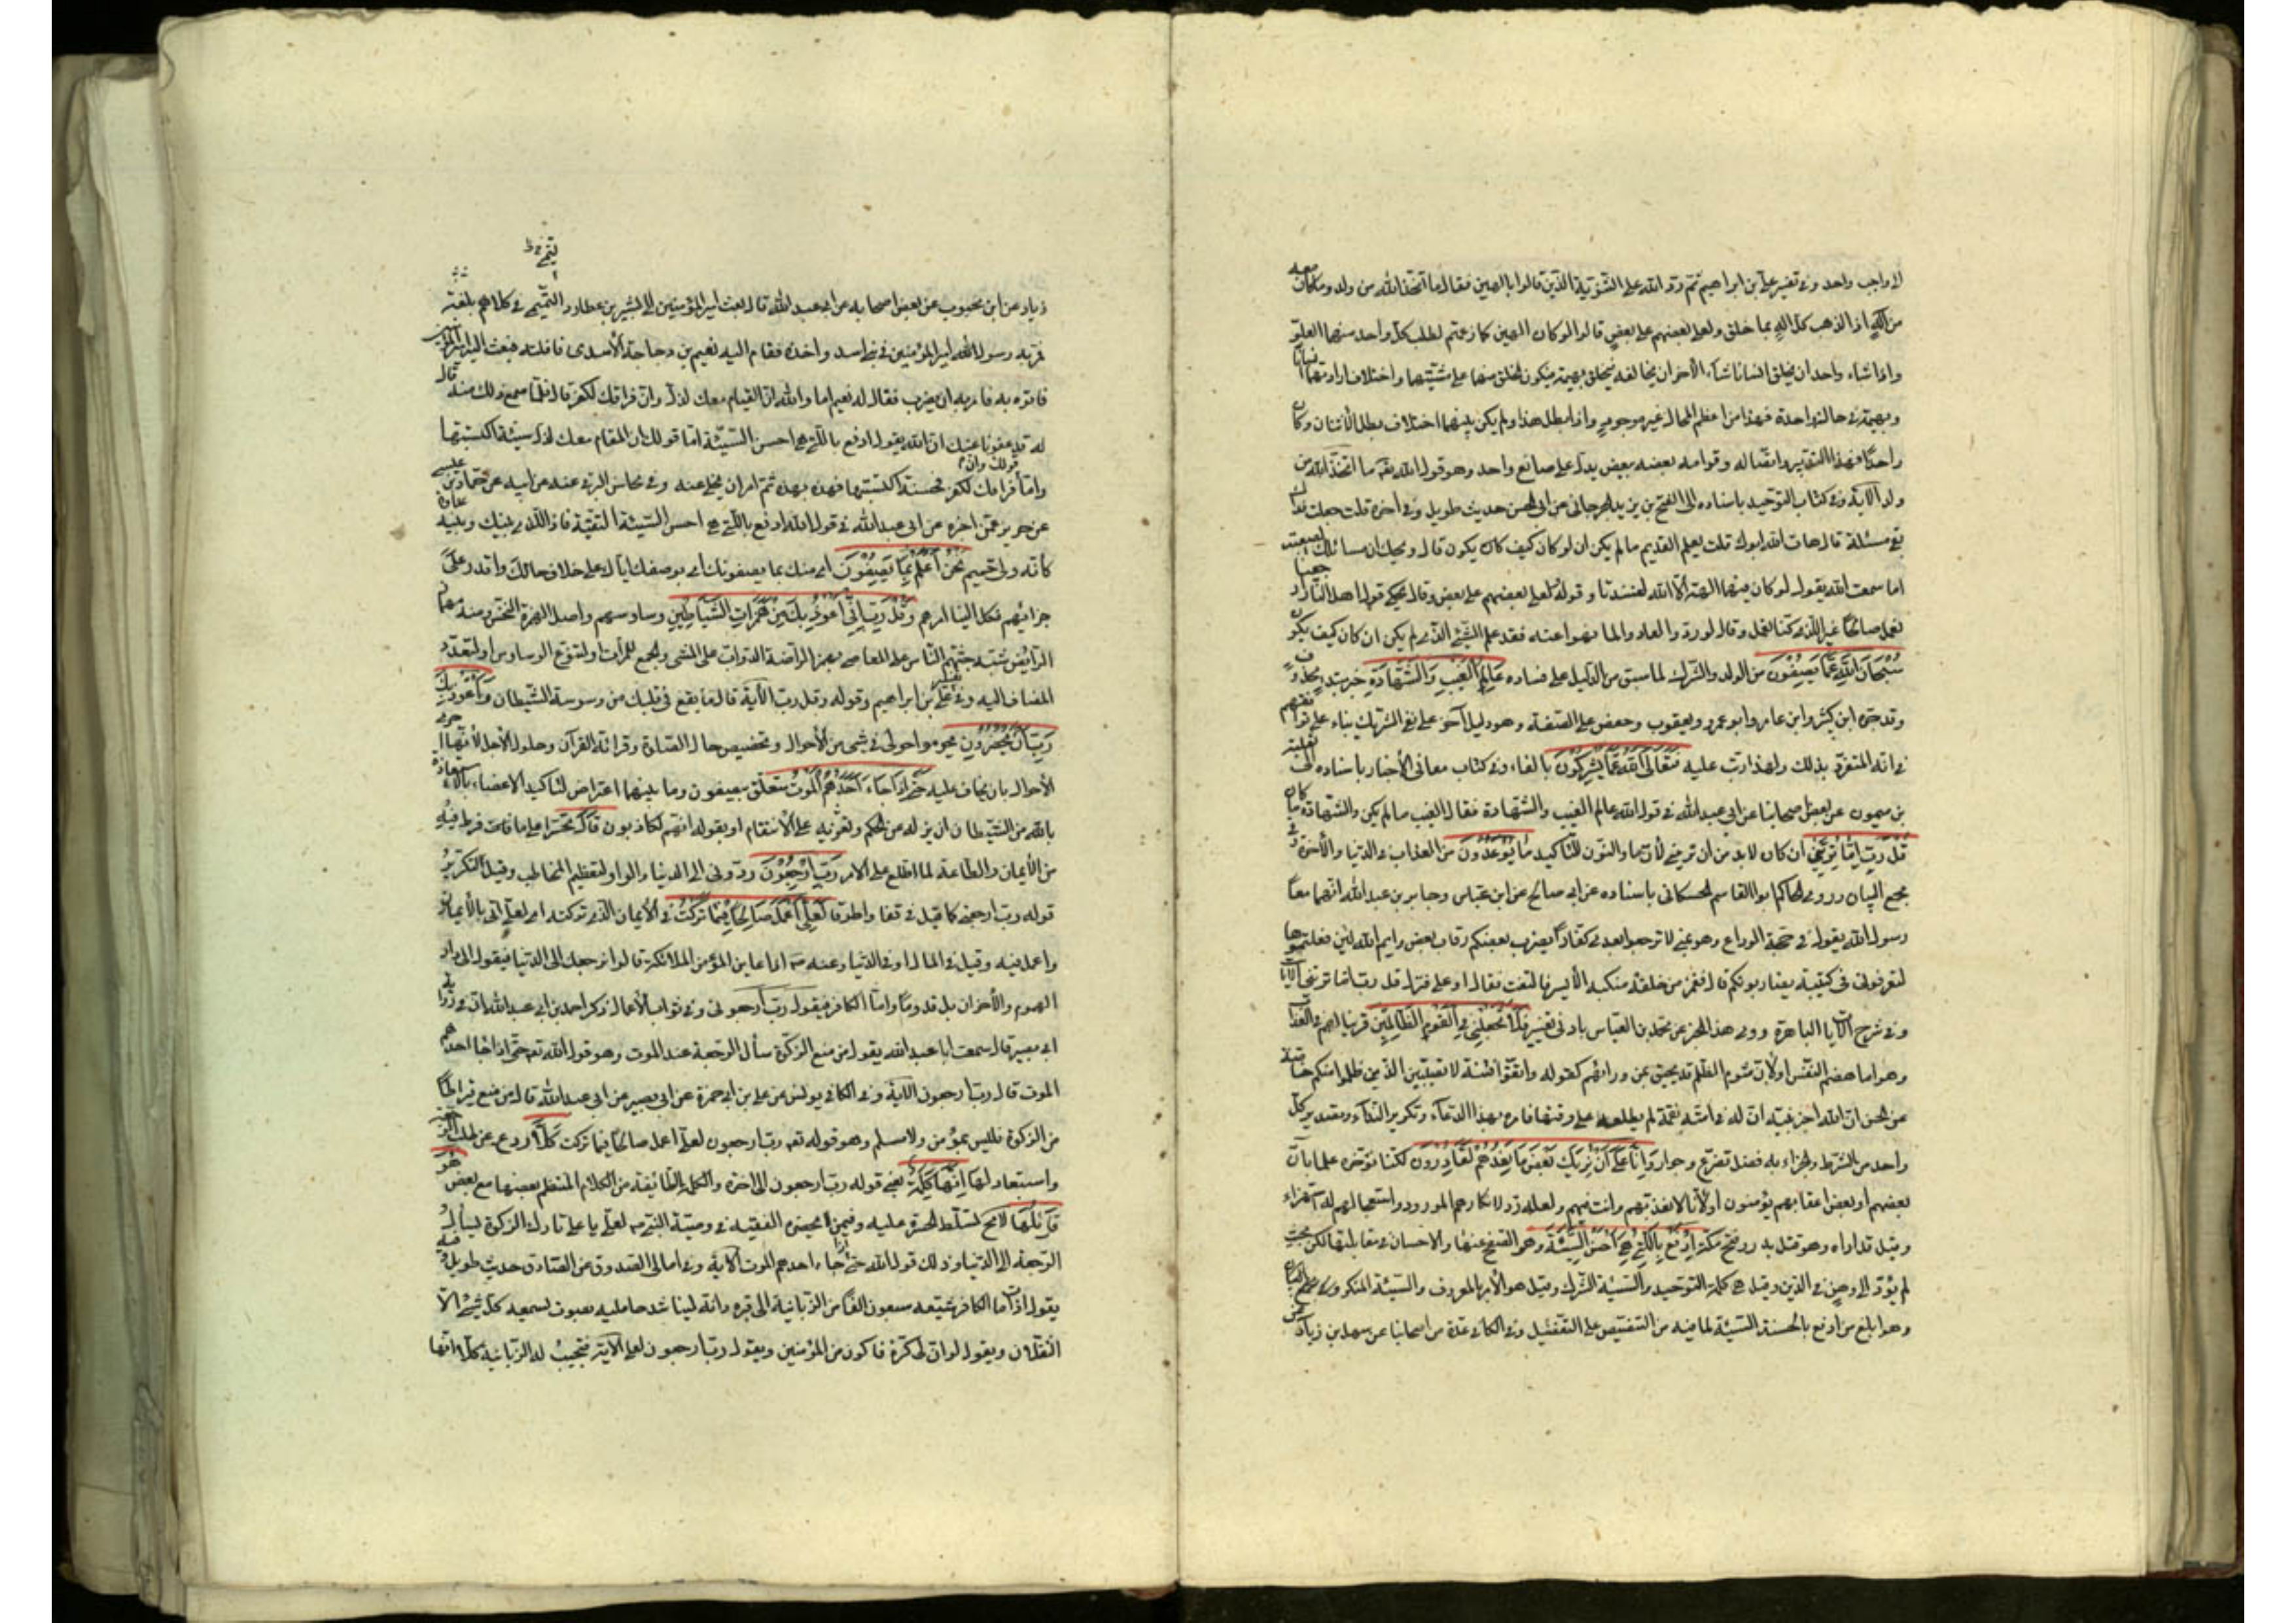 الى واجب واحد وفى تفسير على بن ابراهيم ثم رد الله على الثنوية الذين قالوا بالهين فقال ما اتخذ الله من ولد وما كان معه
من اله اذا لذهب كل اله بما خلق ولعلى بعضهم على بعض قال لو كان الهين كما زعمتم لطلب كل واحد منهما العلو
واذا شاء واحد ان يخلق انسانا شاء الآخر ان يخالفه فيخلق بهيمة فيكون الخلق منهما على مشيتهما واختلاف ارادتهما انسانا
وبهيمة فى حالة واحدة فهذا من اعظم المحال غير موجود واذا بطل هذا ولم يكن بينهما اختلاف بطل الاثنان وكان
واحدا فهذا التدبير واتصاله وقوام بعضه ببعض يدل على صانع واحد وهو قول الله تعه ما اتخذ الله من
ولد الآية وفى كتاب التوحيد باسناده الى الفتح بن يزيد الجرجانى عن ابى الحسن حديث طويل وفى آخره قلت جعلت فداك
بقى مسئلة قال هات لله ابوك قلت يعلم القديم ما لم يكن ان لو كان كيف كان يكون قال ويحك ان مسائلك لصعبة
اما سمعت الله يقول لو كان فيهما الهة الا الله لفسدتا وقوله ولعلى بعضهم على بعض وقال يحكى قول اهل النار ارجعنا
نعمل صالحا غير الذى كنا نعمل وقال لو ردوا لعادوا لما نهوا عنه فقد علم الشئ الذى لم يكن ان لو كان كيف يكون
سُبْحَانَ اللَّهِ عَمَّا يَصِفُونَ من الولد والشرك لما سبق من الدليل على فساده عَالِمِ الْغَيْبِ وَالشَّهَادَةِ خبر مبتدا محذوف
وقد جره ابن كثير وابن عامر وابو عمرو ويعقوب وحفص على الصفة وهو دليل آخر على نفى الشريك بناء على توافقهم
فى انه المتفرد بذلك ولهذا رتب عليه فَتَعَالَى اللَّهُ عَمَّا يُشْرِكُونَ بالفاء وفى كتاب معانى الأخبار باسناده الى ثعلبة
بن ميمون عن بعض اصحابنا عن ابى عبد الله فى قول الله عالم الغيب والشهادة فقال الغيب ما لم يكن والشهادة ما كان
قُلْ رَبِّ إِمَّا تُرِيَنِّي ان كان لا بد من ان ترينى لأن ما والنون للتأكيد مَا يُوعَدُونَ من العذاب فى الدنيا والآخرة وفى
مجمع البيان وروى الحاكم ابو القاسم الحسكانى باسناده عن ابى صالح عن ابن عباس وجابر بن عبد الله انهما سمعا
رسول الله يقول فى حجة الوداع وهو بمنى لا ترجعوا بعدى كفارا يضرب بعضكم رقاب بعض وايم الله لئن فعلتموها
لتعرفونى فى كتيبة يضاربونكم قال فغمز من خلفه منكبه الأيسر فالتفت فقال او على فنزل قل رب اما ترينى الآيات
وفى شرح الآيات الباهرة وروى هذا الخبر عن محمد بن العباس بادنى تغيير فَلَا تَجْعَلْنِي فِي الْقَوْمِ الظَّالِمِينَ قرينا لهم فى العذاب
وهو اما هضم النفس او لأن شؤم الظلم قد يحيق بمن وراءهم كقوله واتقوا فتنة لا تصيبن الذين ظلموا منكم خاصة
عن الحسن ان الله اخبر نبيه ان له فى امته نقمة لم يطلعه على وقتها فامره بهذا الدعاء وتكرير النداء وتصدير كل
واحد من الشرط والجزاء به فضل تضرع وجوار وَإِنَّا عَلَى أَنْ نُرِيَكَ مَا نَعِدُهُمْ لَقَادِرُونَ لكنا نؤخره علما بان
بعضهم او بعض اعقابهم يؤمنون او لأنا لا نعذبهم وانت فيهم ولعله رد لانكارهم الموعود واستعجالهم له استهزاء
وقيل قد اراه وهو قتل بدر وفتح مكة ادْفَعْ بِالَّتِي هِيَ أَحْسَنُ السَّيِّئَةَ وهو الصفح عنها والاحسان فى مقابلتها لكن بحيث
لم يؤد الى وهن فى الدين وقيل هى كلمة التوحيد والسيئة الشرك وقيل هو الأمر بالمعروف والسيئة المنكر
وهو ابلغ من ادفع بالحسنة السيئة لما فيه من التنصيص على التفضيل وفى الكافى عدة من اصحابنا عن سهل بن زياد
زياد عن ابن محبوب عن بعض اصحابه عن ابى عبد الله قال بعث امير المؤمنين الى بشر بن عطارد التميمى فى كلام بلغه
فمر به رسول امير المؤمنين فى بنى اسد واخذه فقام اليه نعيم بن دجاجة الأسدى فافلته فبعث اليه امير المؤمنين
فاتوه به فامر به ان يضرب فقال له نعيم اما والله ان القيام معك لذل وان فراقك لكفر قال فلما سمع ذلك منه قال
له قد عفونا عنك ان الله يقول ادفع بالتى هى احسن السيئة اما قولك ان المقام معك لذل فسيئة اكتسبتها
واما قولك وان فراقك لكفر فحسنة اكتسبتها فهذه بهذه ثم امر ان يخلى عنه وفى محاسن البرقى عنه عن ابيه عن حماد بن عيسى
عن حريز عمن اخبره عن ابى عبد الله فى قول الله ادفع بالتى هى احسن السيئة التقية فاذا الذى بينك وبينه عداوة
كانه ولى حميم نَحْنُ أَعْلَمُ بِمَا يَصِفُونَ اى منك بما يصفونك او بوصفك اياك على خلاف حالك واقدر على
جزائهم فكل الينا امرهم وَقُلْ رَبِّ إِنِّي أَعُوذُ بِكَ مِنْ هَمَزَاتِ الشَّيَاطِينِ وساوسهم واصل الهمزة النخس ومنه مهماز
الرائض شبه حثهم الناس على المعاصى بهمز الراضة الدواب على المشى والجمع للمرات او لتنوع الوساوس او لتعدد
المضاف اليه وفى تفسير على بن ابراهيم وقوله وقل رب الآية قال ما يقع فى قلبك من وسوسة الشيطان وَأَعُوذُ بِكَ
رَبِّ أَنْ يَحْضُرُونِ يحوموا حولى فى شئ من الأحوال وتخصيص حال الصلوة وقرائة القرآن وحلول الأجل لأنها احرى
الأحوال بان يخاف عليه حَتَّى إِذَا جَاءَ أَحَدَهُمُ الْمَوْتُ متعلق بيصفون وما بينهما اعتراض لتأكيد الاغضاء بالاستعاذة
بالله من الشيطان ان يزله عن الحكم ويغريه على الانتقام او بقوله انهم لكاذبون قَالَ تحسرا على ما فات فرط فيه
من الأيمان والطاعة لما اطلع على الأمر رَبِّ ارْجِعُونِ ردونى الى الدنيا والواو لتعظيم المخاطب وقيل لتكرير
قوله رب ارجعنى كما قيل فى قفا واطرقا لَعَلِّي أَعْمَلُ صَالِحًا فِيمَا تَرَكْتُ فى الأيمان الذى تركته اى لعلى اتى بالأيمان
واعمل فيه وقيل فى المال او فى الدنيا وعنه اذا عاين المؤمن الملائكة قالوا نرجعك الى الدنيا فيقول الى دار
الهموم والأحزان بل قدوما واما الكافر فيقول رب ارجعونى وفى ثواب الأعمال ذكر احمد بن ابى عبد الله ان فى رواية
ابى بصير قال سمعت ابا عبد الله يقول من منع الزكوة سأل الرجعة عند الموت وهو قول الله تعه حتى اذا جاء احدهم
الموت قال رب ارجعون الآية وفى الكافى يونس عن على بن ابى حمزة عن ابى بصير عن ابى عبد الله قال من منع قيراطا
من الزكوة فليس بمؤمن ولا مسلم وهو قوله تعه رب ارجعون لعلى اعمل صالحا فيما تركت كَلَّا ردع عن طلب الرجعة
واستبعاد لها إِنَّهَا كَلِمَةٌ يعنى قوله رب ارجعون الى اخره والكلمة الطائفة من الكلام المنتظم بعضها مع بعض هُوَ
قَائِلُهَا لا محة لتسلط الحسرة عليه وفيمن لا يحضره الفقيه فى وصية النبى لعلى يا على تارك الزكوة يسأل
الرجعة الى الدنيا وذلك قول الله حتى اذا جاء احدهم الموت الآية وفى امالى الصدوق عن الصادق حديث طويل فيه
يقول اذا مات الكافر شيعه سبعون الفا من الزبانية الى قبره وانه ليناشد حامليه بصوت يسمعه كل شئ الا
الثقلان ويقول لو ان لى كرة فاكون من المؤمنين ويقول رب ارجعون لعلى الآية فتجيبه الزبانية كلا انها